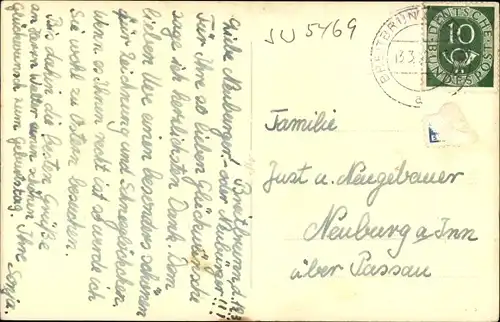 SU 5469
BREITBRUNN
13.3.
a
DEUTSCHE BUNDESPOST
10
Breitbrunn d. 12.3.
Gute Neuburger! oder Neubürger!!!
Für Ihre so lieben Glückwünsche
sage ich herzlichsten Dank. Dem
lieben Uwe einen besonders schönen
für Zeichnung und Schneeglöckchen.
Wenn es Ihnen recht ist so werde ich
Sie wohl zu Ostern besuchen.
Bis dahin die besten Grüße
Glückwunsch zum Geburtstag.
Familie
Just u. Neugebauer
Neuburg a. Inn
über Passau